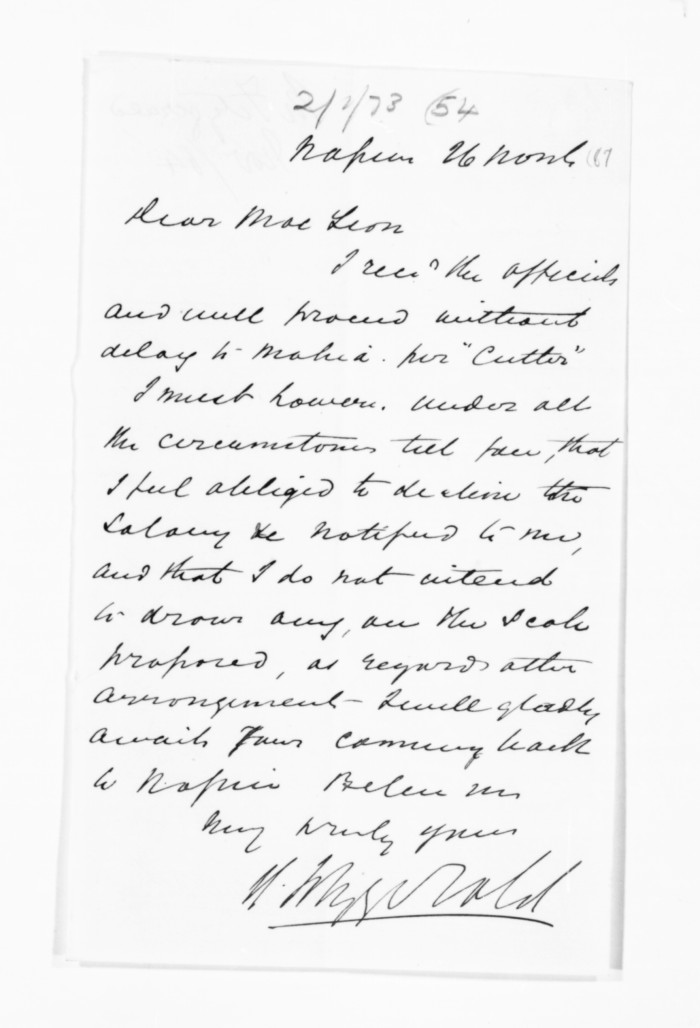 2/1/73 (54
Napier 26 Novb (67
Dear Mac Lean
I recd the officials
and will proceed without
delay to Mahia. per "Cutter"
I must however. under all
the circumstances tell you, that
I feel obliged to decline the
Salary &c notified to me,
and that I do not intend
to draw any, on the Scale
proposed, as regards other
arrangement - I will gladly
await your coming back
to Napier Believe me
Very truly yours
Fitzgerald